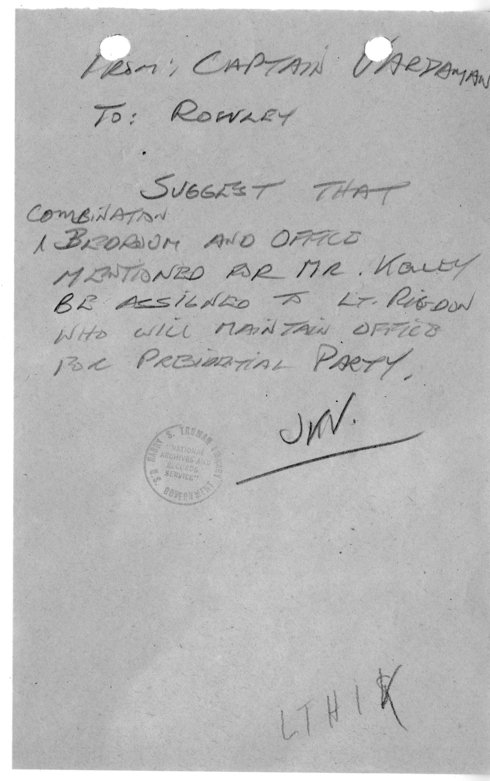 FROM: CAPTAIN VARDAMAN
TO: ROWLEY
SUGGEST THAT
COMBINATION
1 BEDROOM AND OFFICE
MENTIONED FOR MR. KELLEY
BE ASSIGNED TO LT. RIGDON
WHO WILL MAINTAIN OFFICE
FOR PRESIDENTIAL PARTY.
JKV.
HARRY S. TRUMAN LIBRARY
"NATIONAL
ARCHIVES AND
RECORDS
SERVICE"
U.S. GOVERNMENT